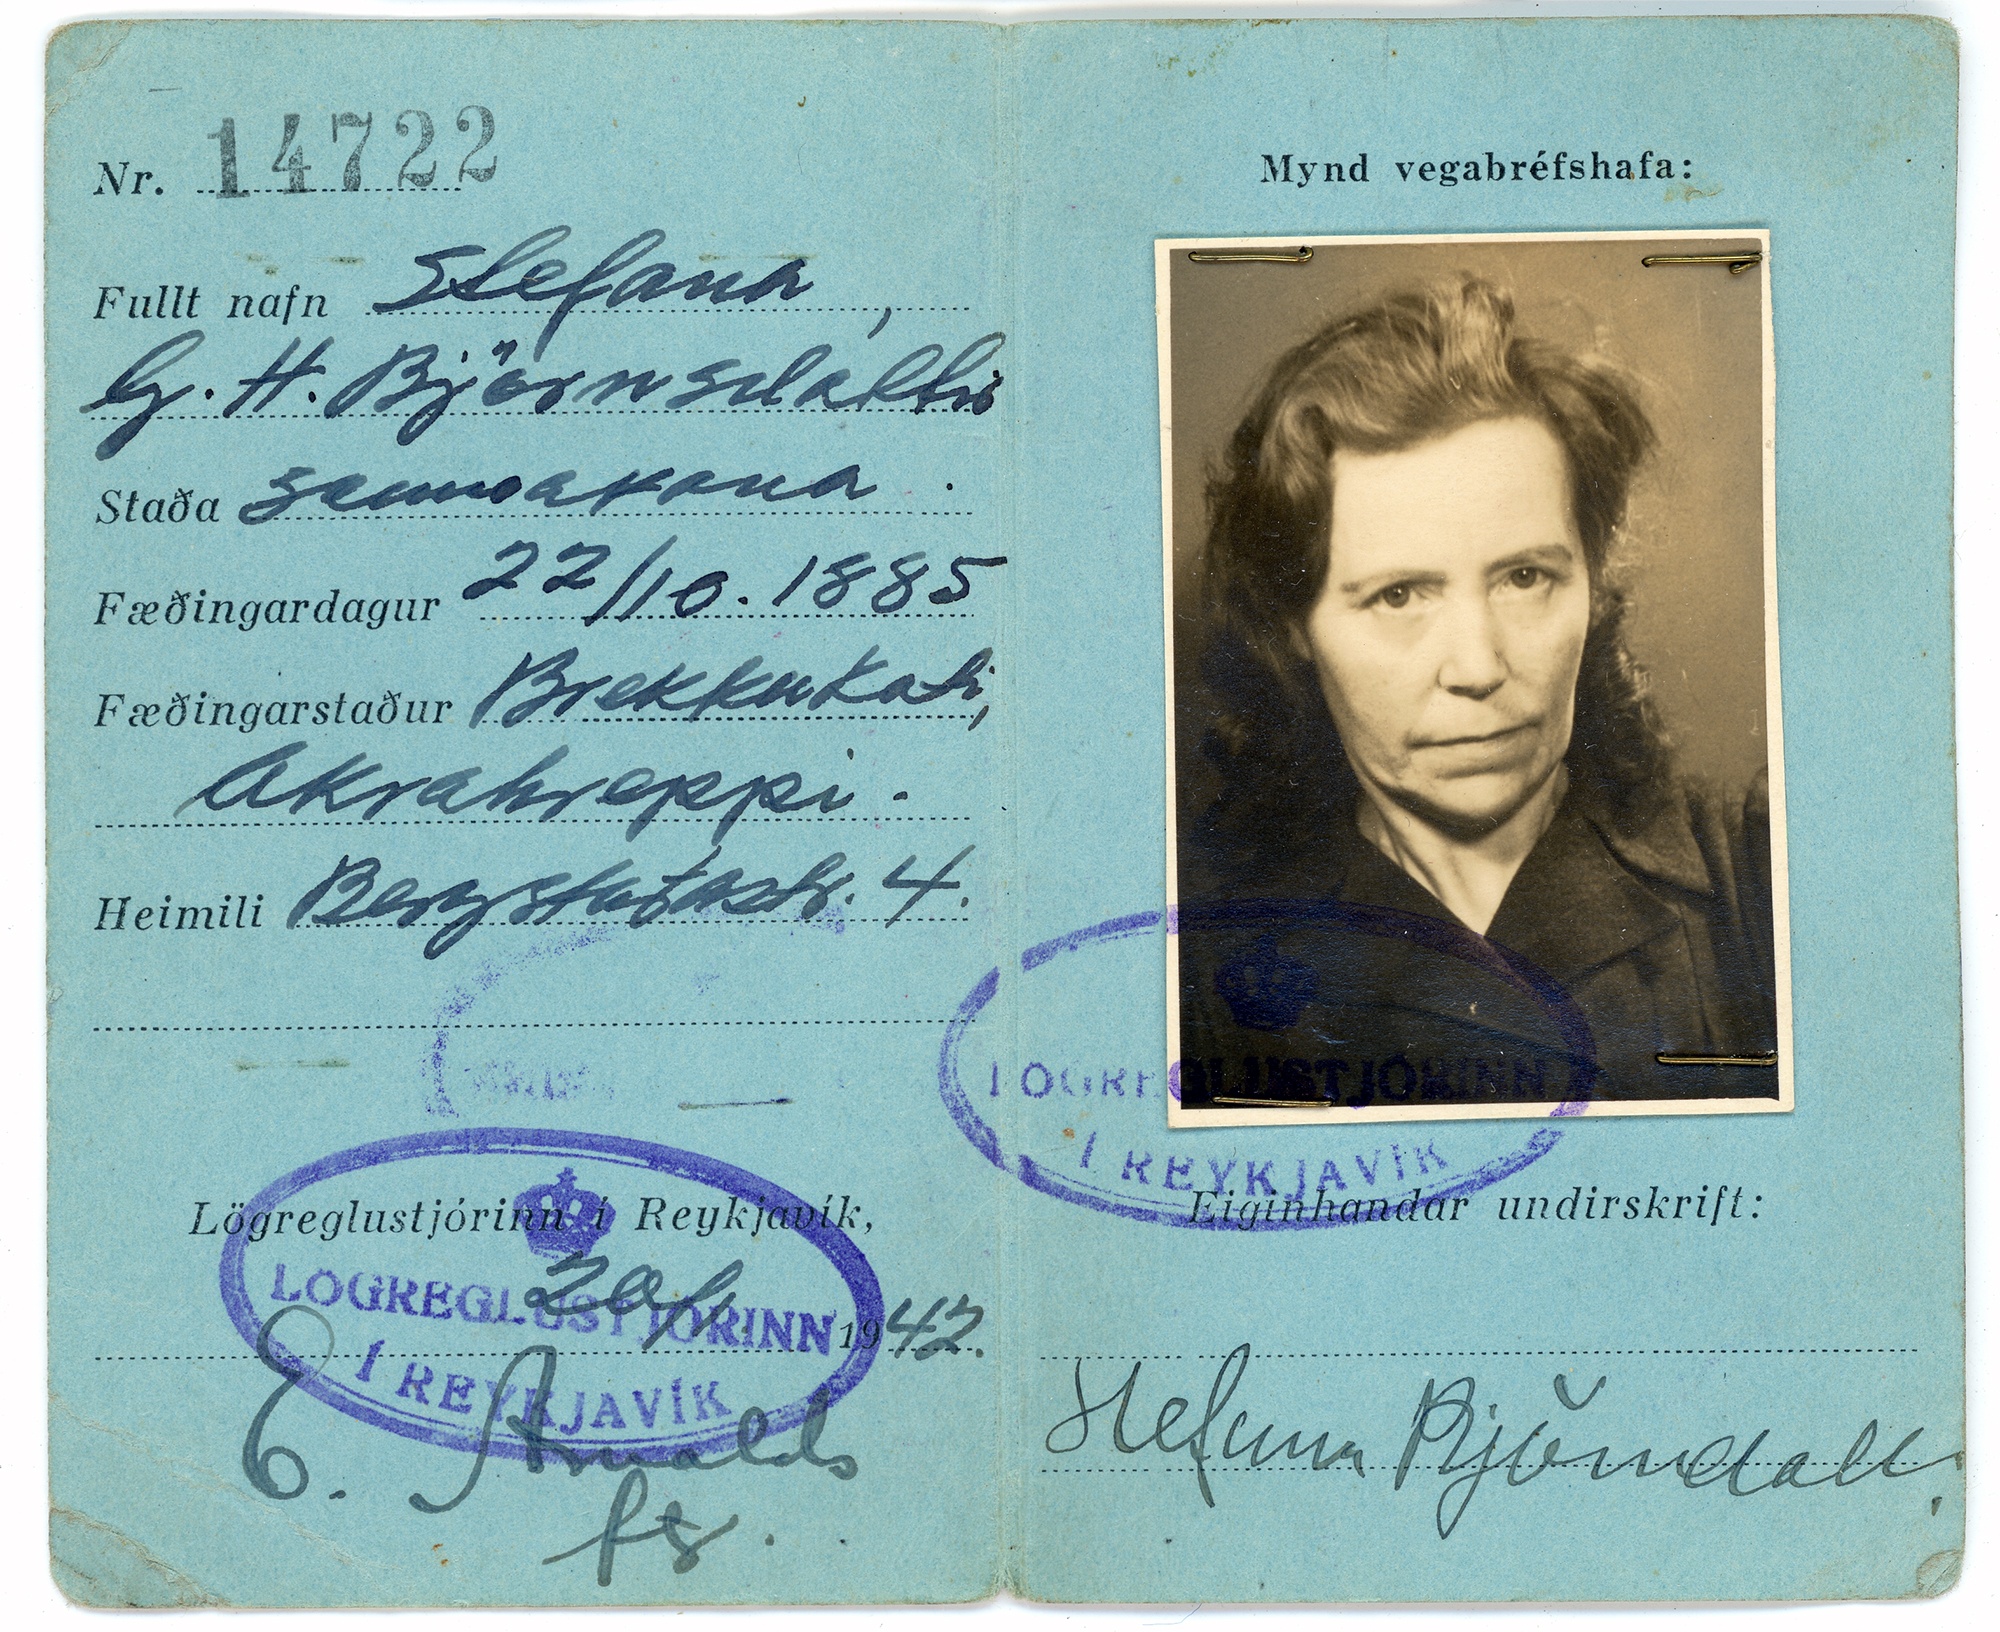 Nr. 14722
Fullt nafn Stefana,
G. H. Björnsdóttir
Staða saumakona.
Fæðingardagur 22/10. 1885
Fæðingarstaður Brekkukoti,
Akrahreppi.
Heimili Bergstaðastr. 4.
Lögreglustjórinn í Reykjavík,
20/1 1942.
LÖGREGLUSTJÓRINN
Í REYKJAVÍK
E. Arnalds
fg.
Mynd vegabréfshafa:
LÖGREGLUSTJÓRINN
Í REYKJAVÍK
Eiginhandar undirskrift:
Stefana Björnsdótt.